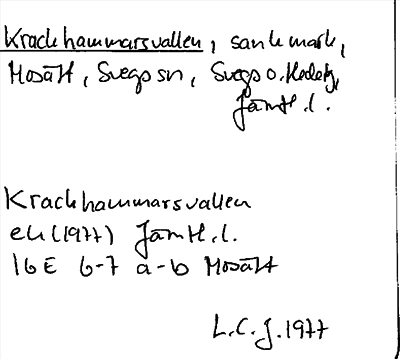 Krackhammarsvallen, sank mark,
Mosätt, Svegs sn, Svegs o. Hede tg,
Jämtl. l.
Krackhammarsvallen
ek (1977) Jämtl. l.
16E 6-7 a-b Mosätt
L.C.J. 1977